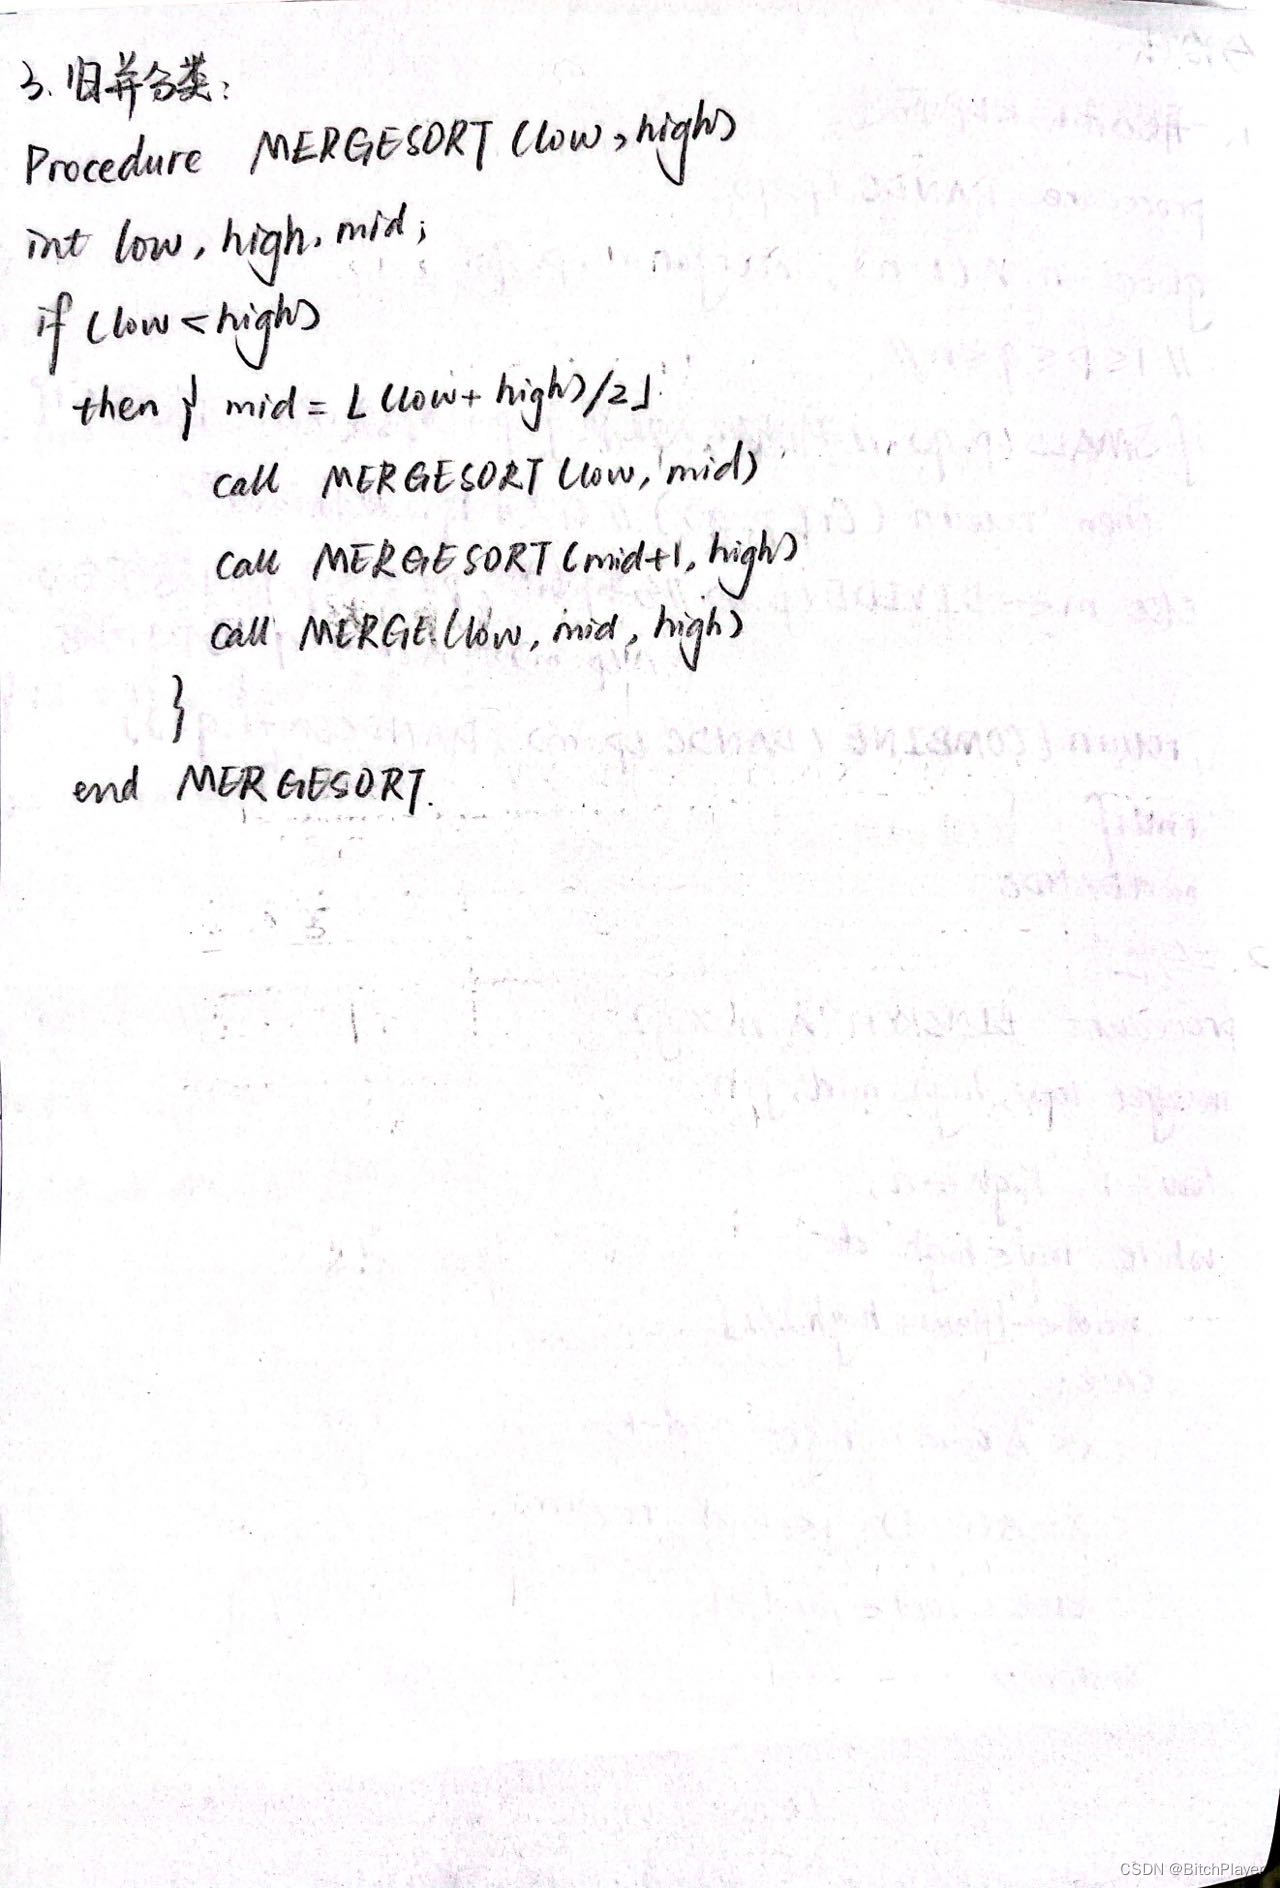 3. 归并分类:
Procedure MERGESORT (low, high)
int low, high, mid;
if (low < high)
then { mid = ⌊(low + high)/2⌋
call MERGESORT (low, mid)
call MERGESORT (mid+1, high)
call MERGE (low, mid, high)
}
end MERGESORT.
CSDN @BitchPlayer